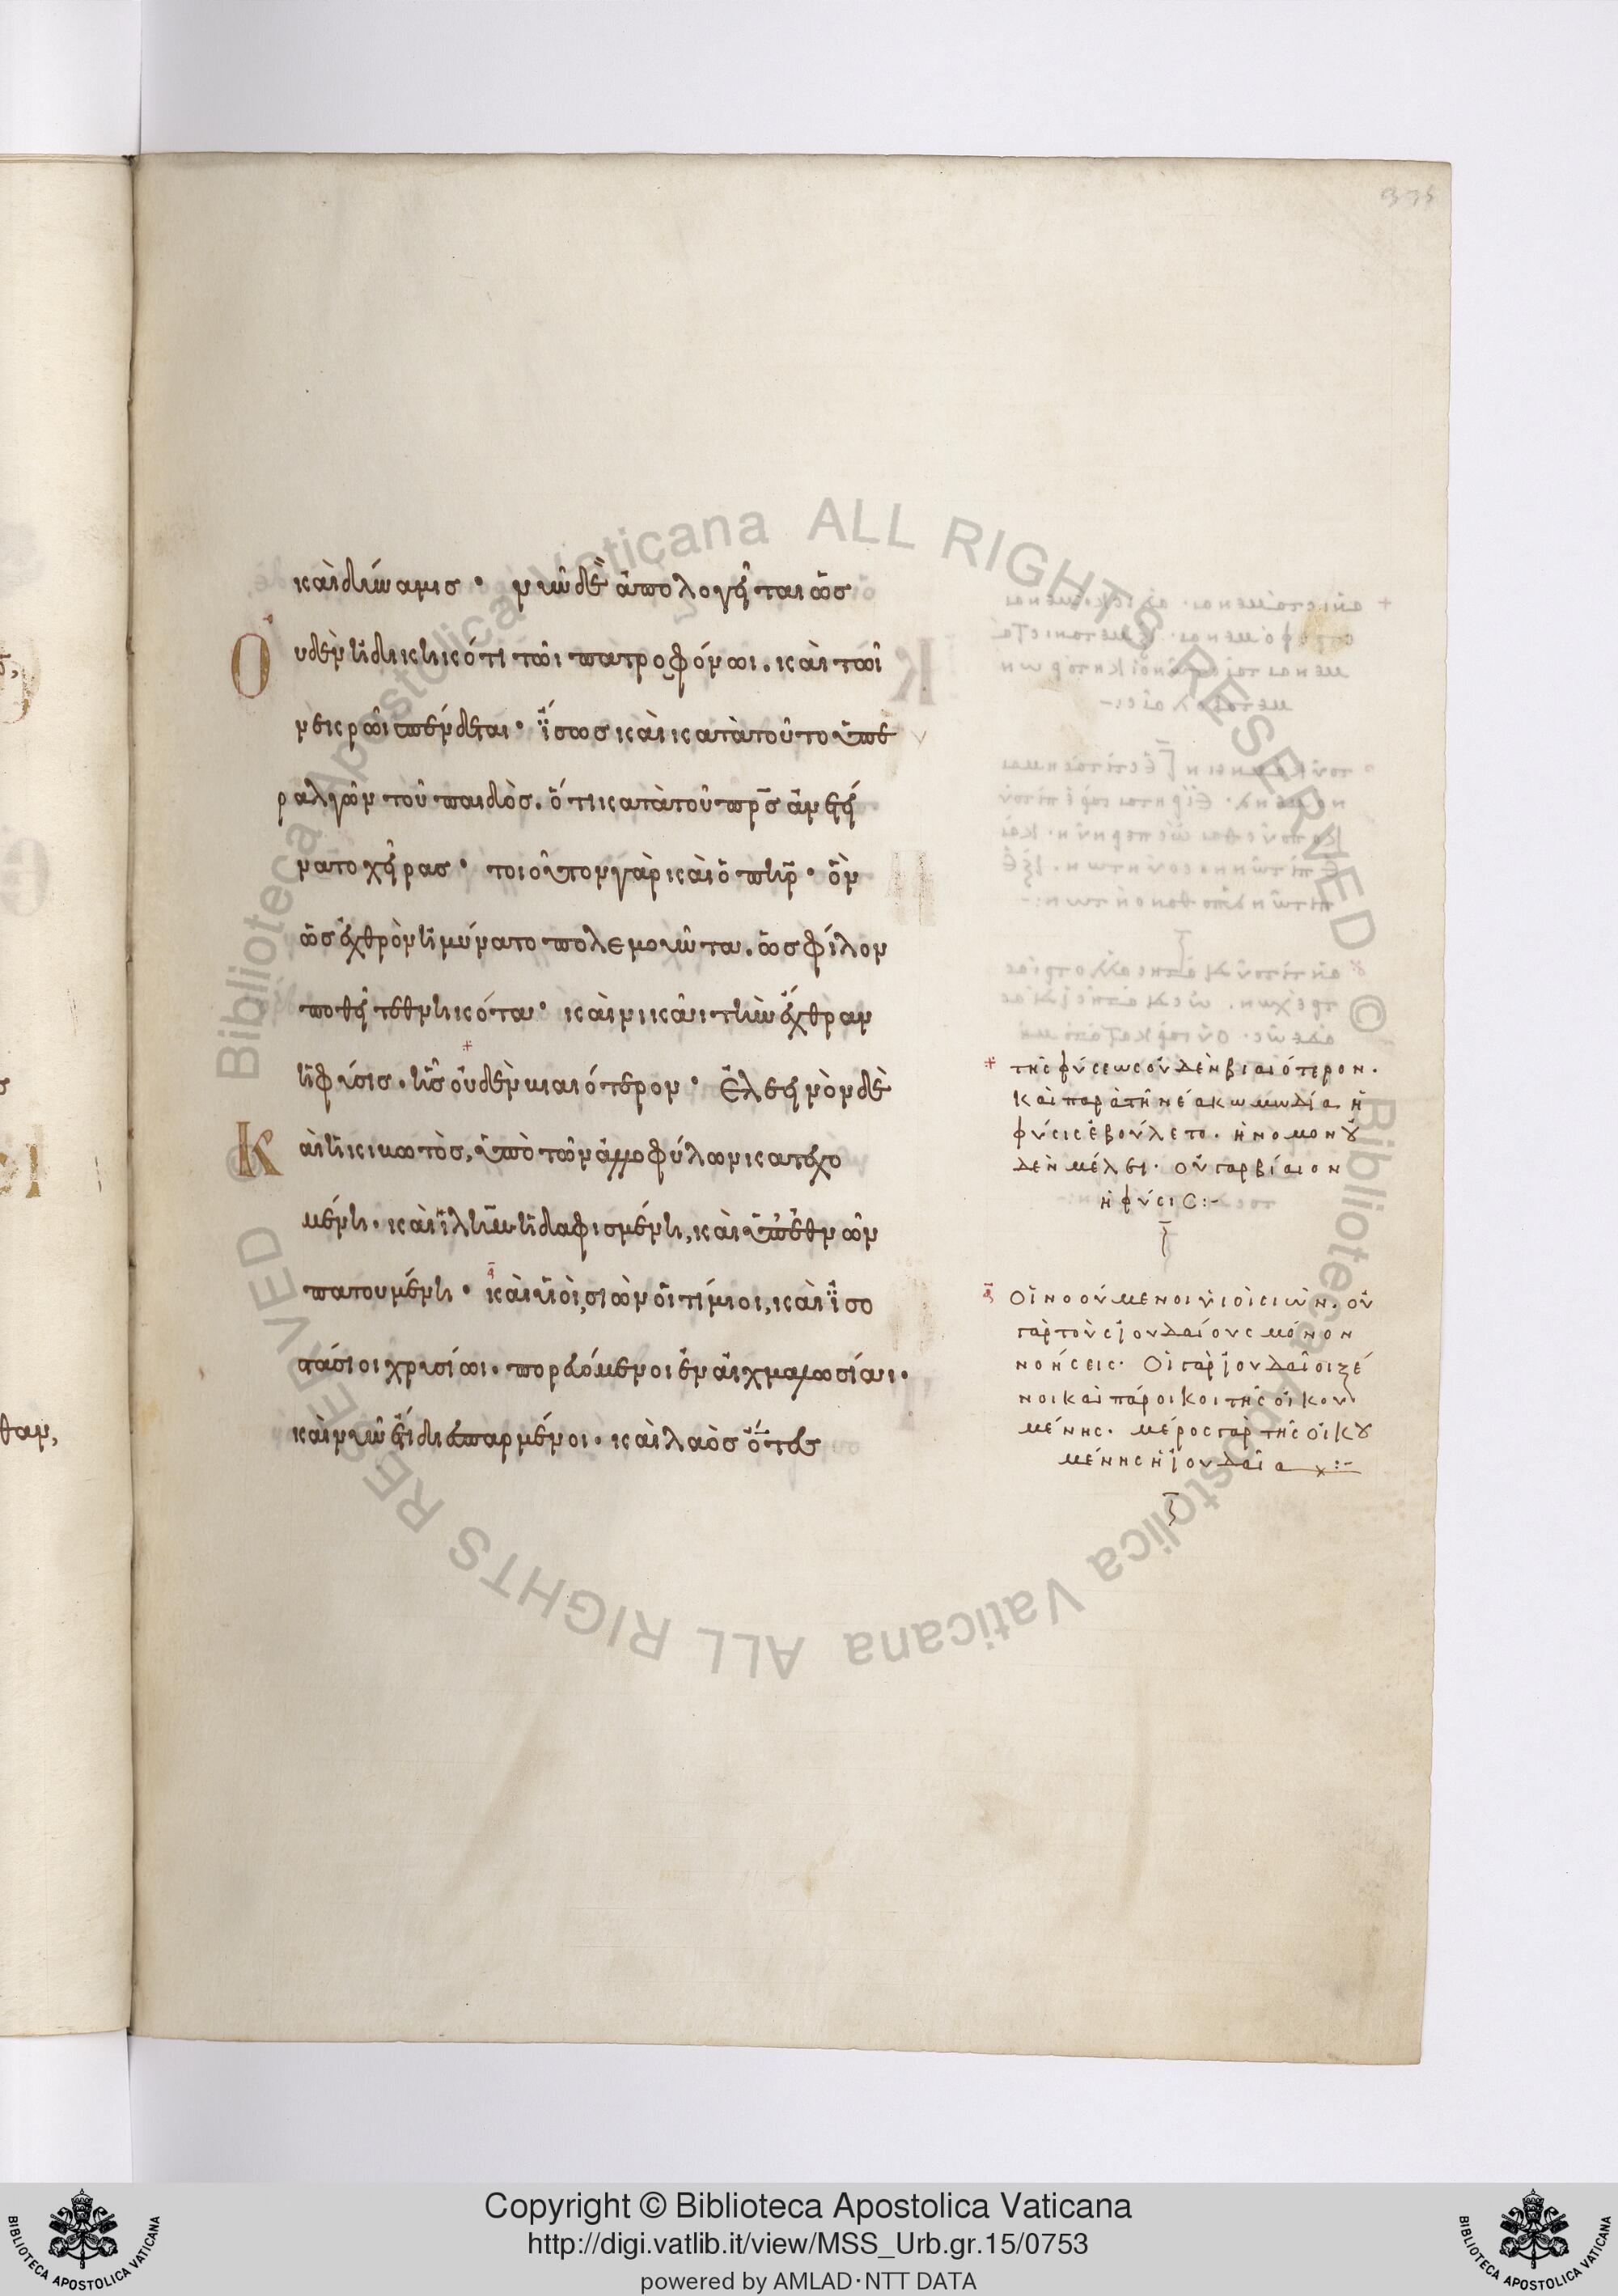 καὶ δύναμις· νῦν δὲ ἀπολογεῖται ὡς
Ο
υδὲν ἠδικηκότι τῶι πατροφόνωι. καὶ τῶι
νεκρῶι σπένδεται· ἴσως καὶ κατὰ τοῦτο ὑπε
ραλγῶν τοῦ παιδὸς. ὅτι κατὰ τοῦ πρς ἀντή
ρατο χεῖρας· τοιοῦτον γὰρ καὶ ὁ πηρ· ὃν
ὡς ἐχθρὸν ἠμύνατο πολεμοῦντα. ὡς φίλον
ποθεῖ τεθνηκότα· καὶ νικᾶι τὴν ἔχθραν
ἡ φύσις. ἧς οὐδὲν βιαιότερον· Ἐλεεινὸν δὲ
Κ
αὶ ἡ κιβωτὸς, ὑπὸ τῶν ἀλλοφύλων κατεχο
μένη. καὶ ἱλημ ἠδαφισμένη, καὶ ὑπ' ἐθνῶν
πατουμένη· καὶ υἱοὶ, σιὼν οἱ τίμιοι, καὶ ἰσο
στάσιοι χρυσίωι. πορευόμενοι ἐν αἰχμαλωσίαι.
καὶ νῦν ἔτι διεσπαρμένοι. καὶ λαὸς ὄντες
+ τῆς φύσεως οὐδὲν βιαιότερον.
Καὶ παρὰ τῆι νέα κωμωδία ἡ
φύσις ἐβούλετο. ἡι νόμον οὐ
δὲν μέλει. οὕτω γὰρ βίαιον
ἡ φύσις:-
Οἱ νοούμενοι υἱοὶ σιών. οὐ
γὰρ τοὺς ἰουδαίους μόνον
νοήσεις. Οἱ γὰρ ἰουδαῖοι ξέ
νοι καὶ πάροικοι τῆς οἰκου
μένης. μέρος γὰρ τῆς οἰκου
μένης ἡ ἰουδαία :-
Copyright © Biblioteca Apostolica Vaticana
http://digi.vatlib.it/view/MSS_Urb.gr.15/0753
powered by AMLAD·NTT DATA
BIBLIOTECA APOSTOLICA VATICANA
BIBLIOTECA APOSTOLICA VATICANA
Biblioteca Apostolica Vaticana ALL RIGHTS RESERVED ©
Biblioteca Apostolica Vaticana ALL RIGHTS RESERVED ©